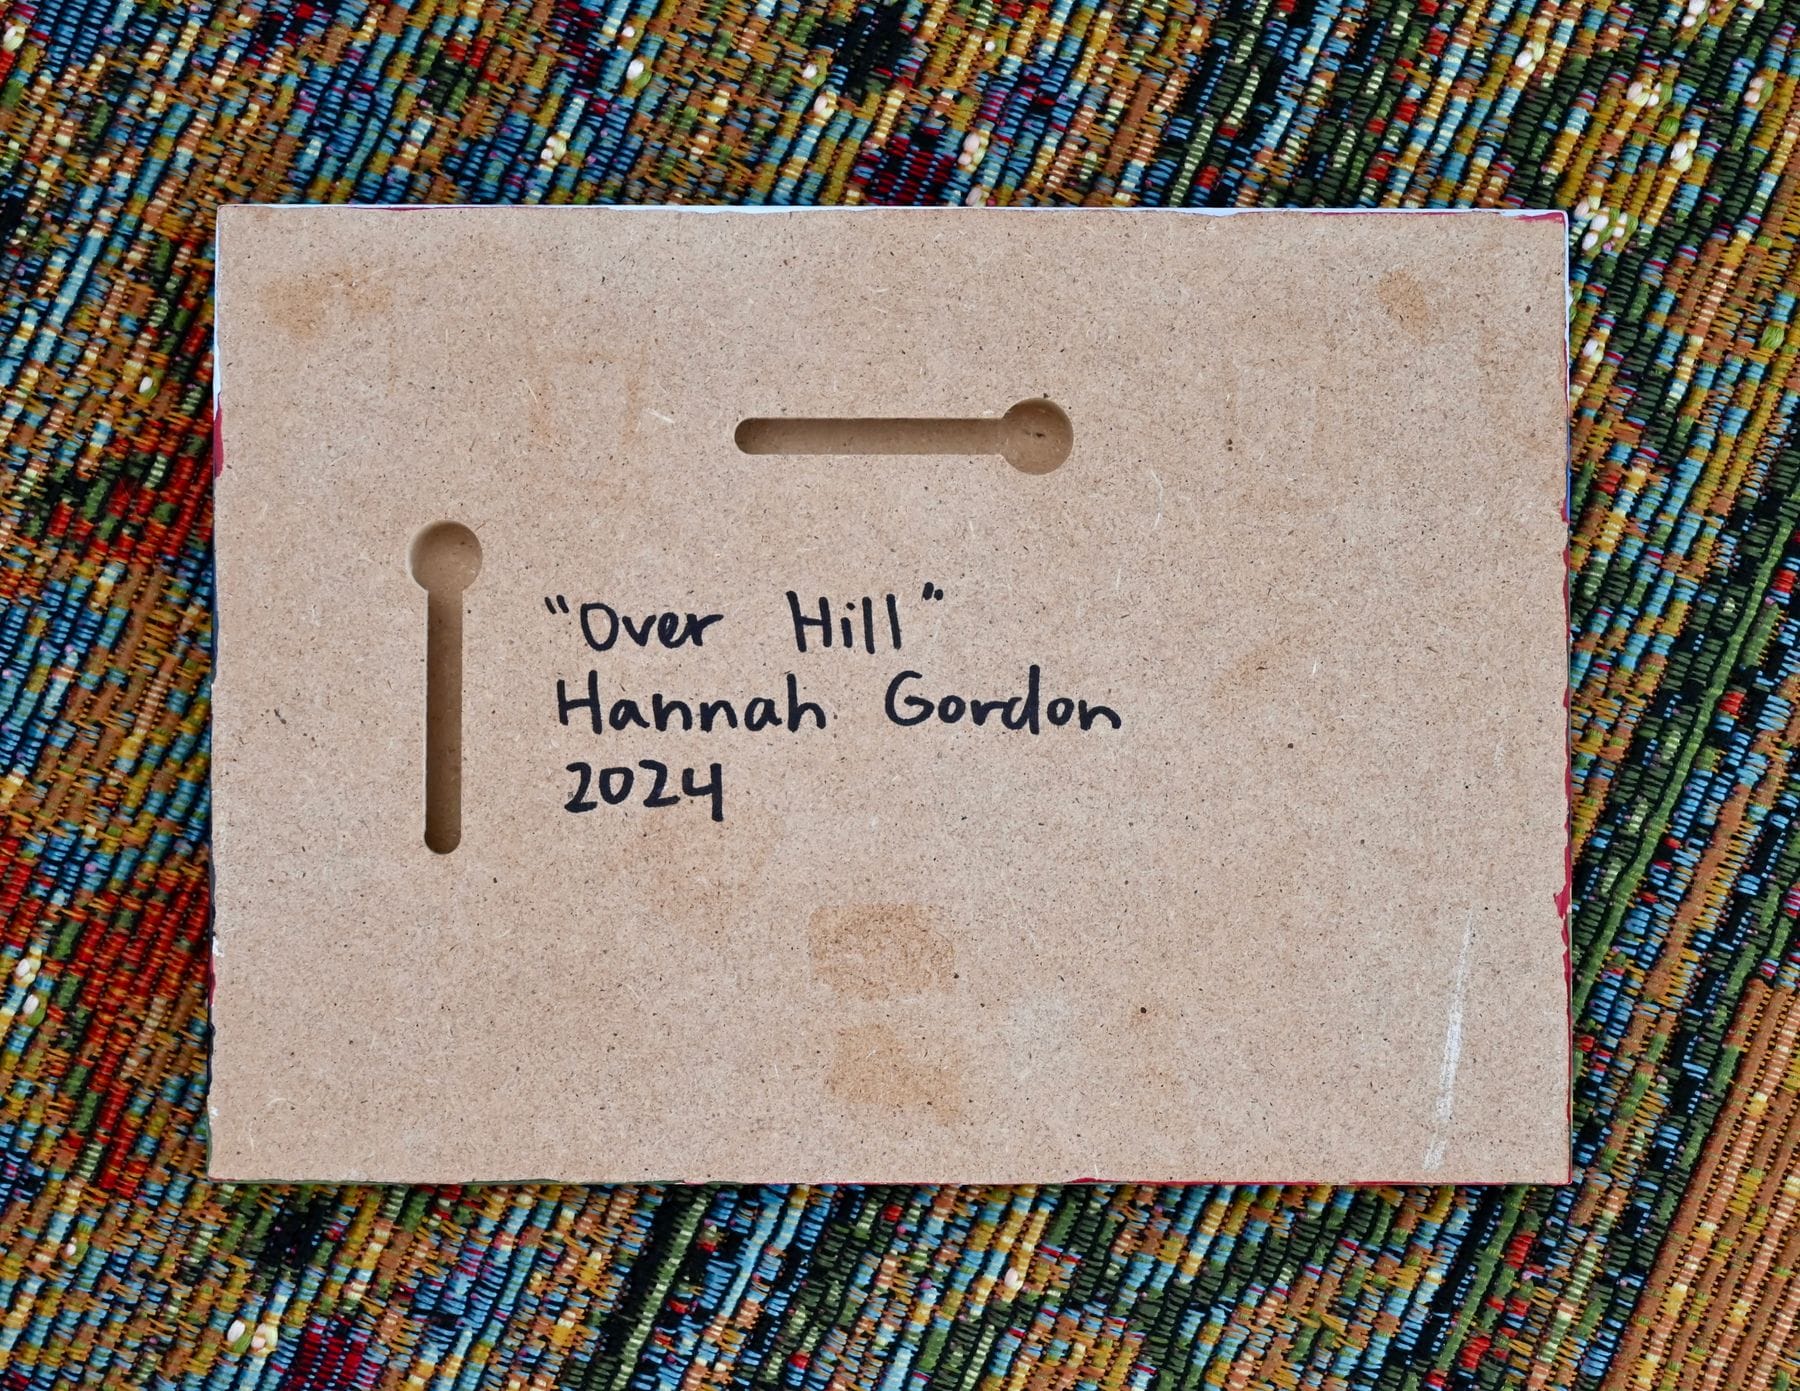 "Over Hill"
Hannah Gordon
2024